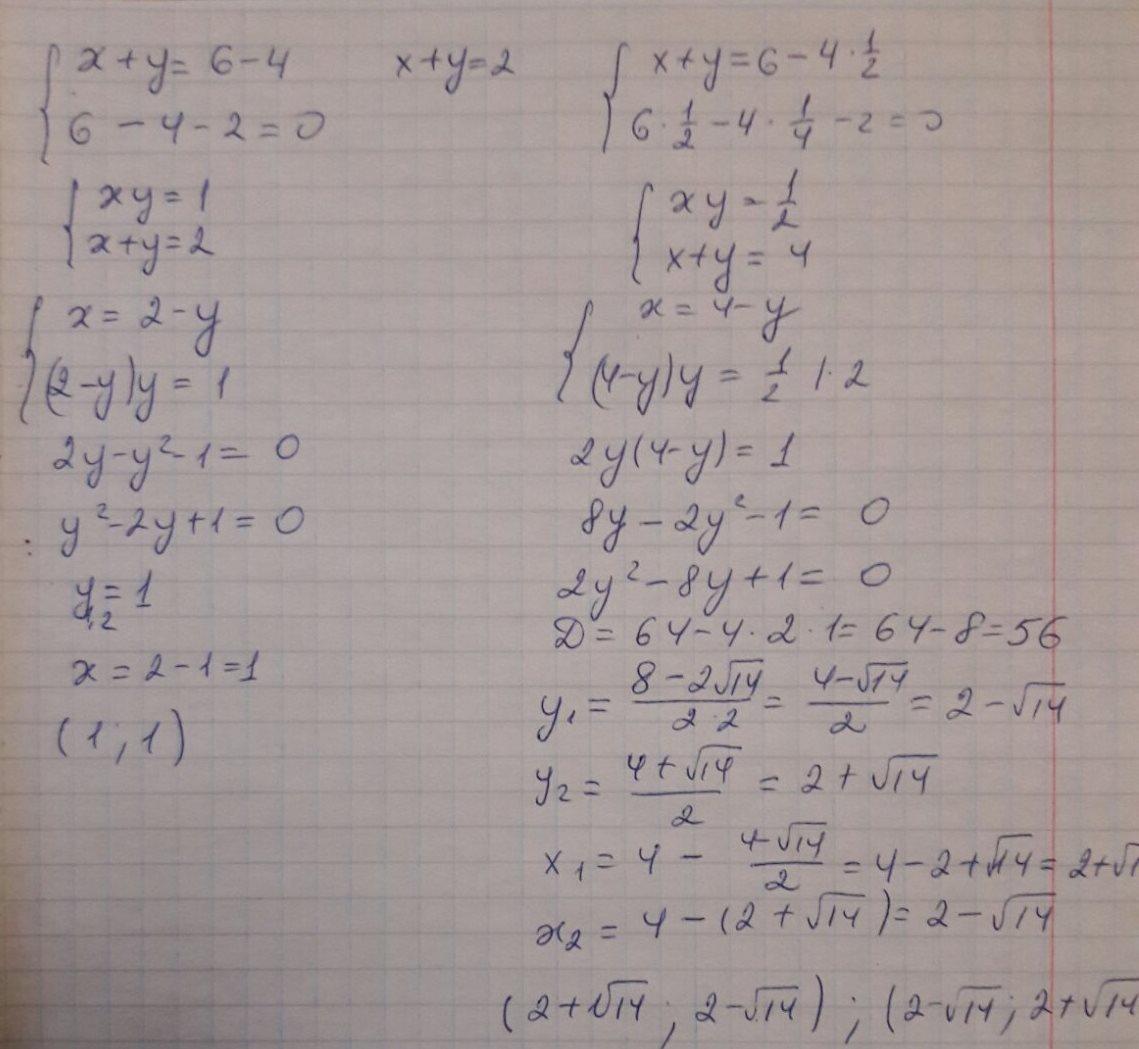 x + y = 6 - 4
6 - 4 - 2 = 0
x + y = 2
xy = 1
x + y = 2
x = 2 - y
(2 - y)y = 1
2y - y² - 1 = 0
y² - 2y + 1 = 0
y₁,₂ = 1
x = 2 - 1 = 1
(1; 1)
x + y = 6 - 4 · 1/2
6 · 1/2 - 4 · 1/4 - 2 = 0
xy = 1/2
x + y = 4
x = 4 - y
(4 - y)y = 1/2 | · 2
2y(4 - y) = 1
8y - 2y² - 1 = 0
2y² - 8y + 1 = 0
D = 64 - 4 · 2 · 1 = 64 - 8 = 56
y₁ = (8 - 2√14)/(2·2) = (4 - √14)/2 = 2 - √14
y₂ = (4 + √14)/2 = 2 + √14
x₁ = 4 - (4 - √14)/2 = 4 - 2 + √14 = 2 + √1
x₂ = 4 - (2 + √14) = 2 - √14
(2 + √14; 2 - √14); (2 - √14; 2 + √14